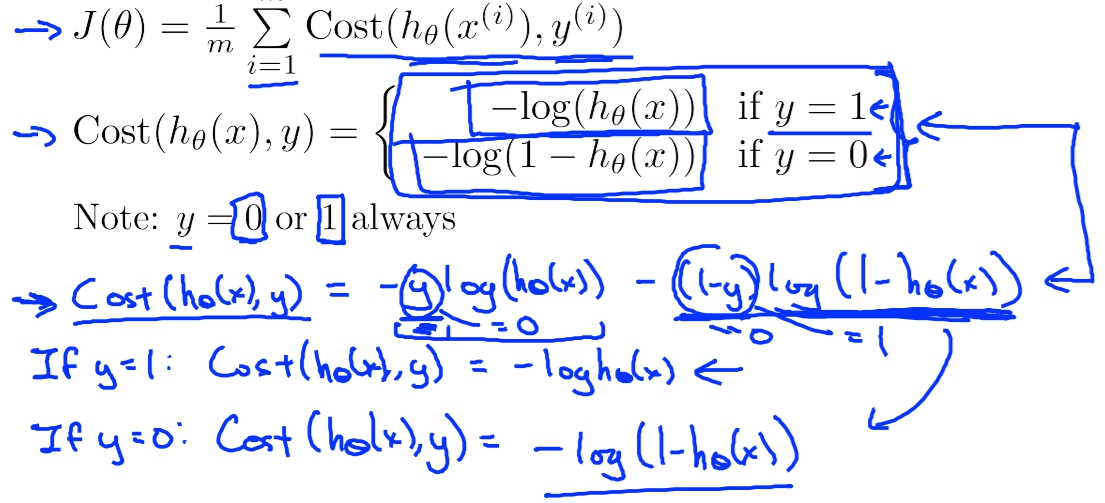 → J(θ) = 1/m Σ_{i=1}^{m} Cost(h_θ(x^{(i)}), y^{(i)})
→ Cost(h_θ(x), y) = { −log(h_θ(x)) if y = 1 ←
−log(1 − h_θ(x)) if y = 0 ←
Note: y = 0 or 1 always
→ Cost(h_θ(x), y) = −y log(h_θ(x)) − (1−y) log(1−h_θ(x)) ←
=1 =0 =0 =1
If y=1: Cost(h_θ(x), y) = −log h_θ(x) ←
If y=0: Cost(h_θ(x), y) = −log(1−h_θ(x))